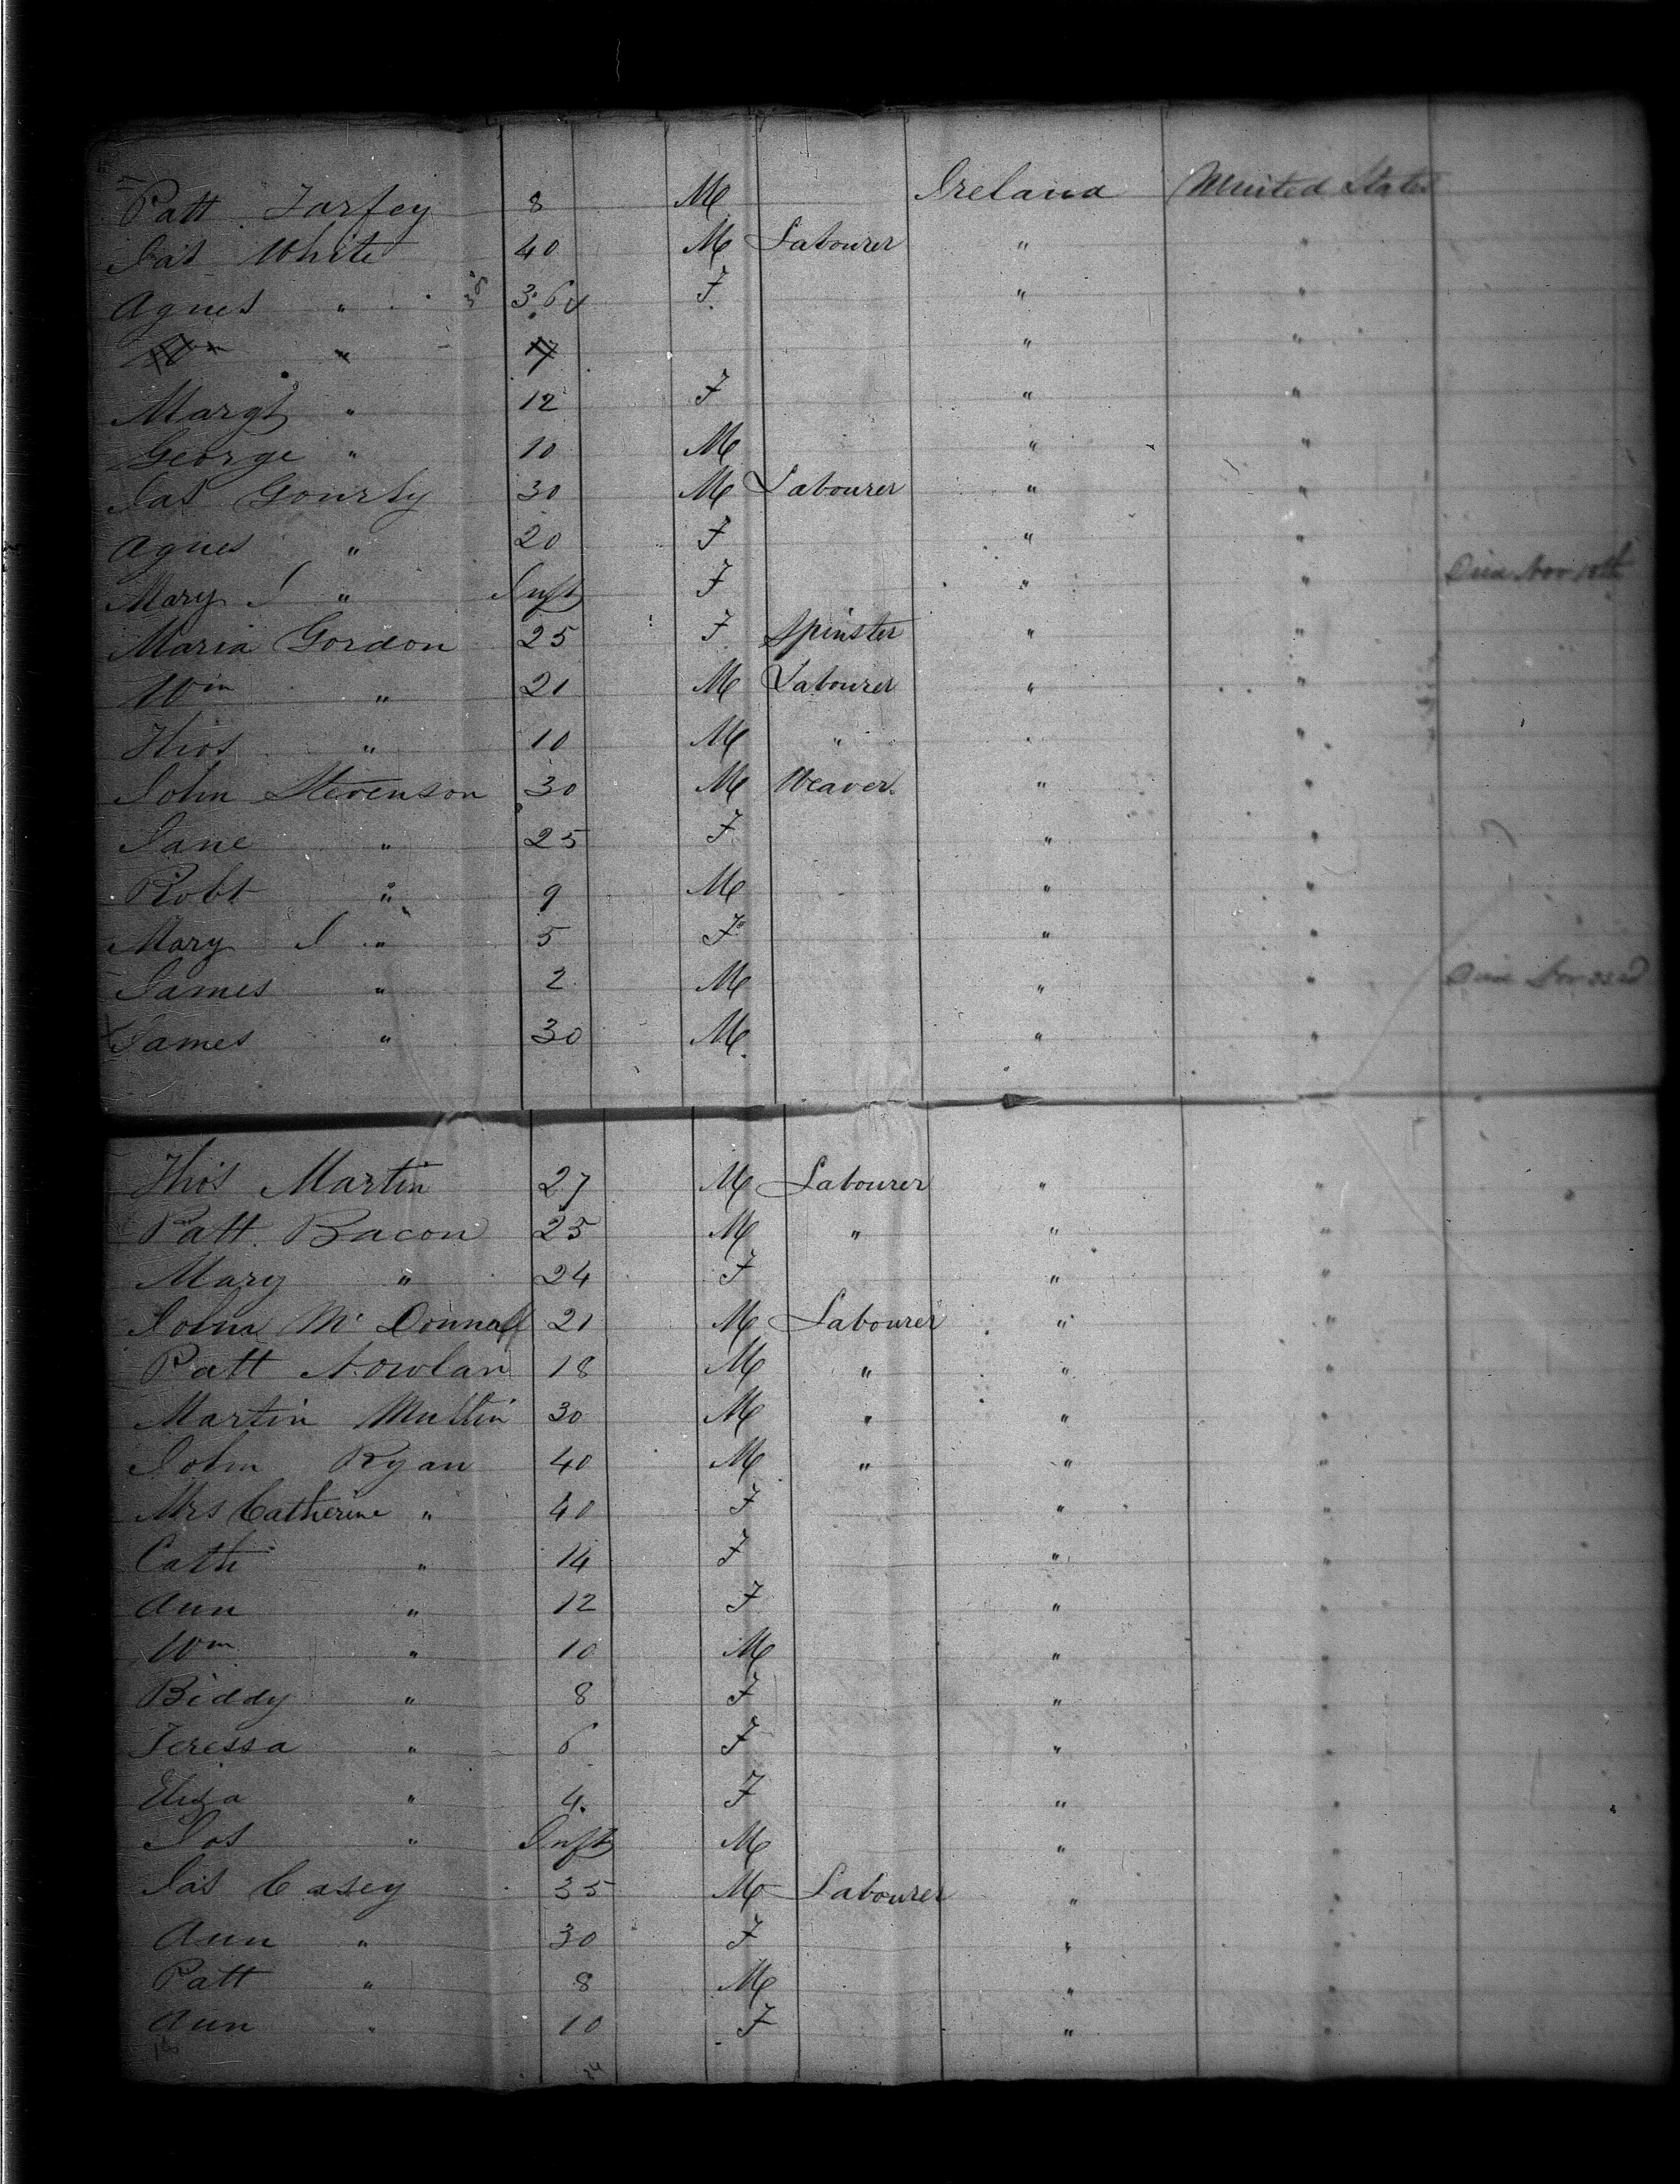 Patt Farfey 8 M Ireland United States
Jas White 40 M Labourer " "
Agnes " 36 F " "
Wm " 7 " "
Margt " 12 F " "
George " 10 M " "
Jas Gourly 30 M Labourer " "
Agnes " 20 F " "
Mary J " Inft F " " Died Nov 10th
Maria Gordon 25 F Spinster " "
Wm " 21 M Labourer " "
Thos " 10 M " " "
John Stevenson 30 M Weaver " "
Jane " 25 F " "
Robt " 9 M " "
Mary J " 5 F " "
James " 2 M " " Died Nov 22d
James " 30 M " "
Thos Martin 27 M Labourer " "
Patt Bacon 25 M " " "
Mary " 24 F " "
John Mc Donnall 21 M Labourer " "
Patt Nowlan 18 M " " "
Martin Mullin 30 M " " "
John Ryan 40 M " " "
Mrs Catherine " 40 F " "
Cath " 14 F " "
Ann " 12 F " "
Wm " 10 M " "
Biddy " 8 F " "
Teressa " 6 F " "
Eliza " 4 F " "
Jos " Inft M " "
Jas Casey 35 M Labourer " "
Ann " 30 F " "
Patt " 8 M " "
Ann " 10 F " "